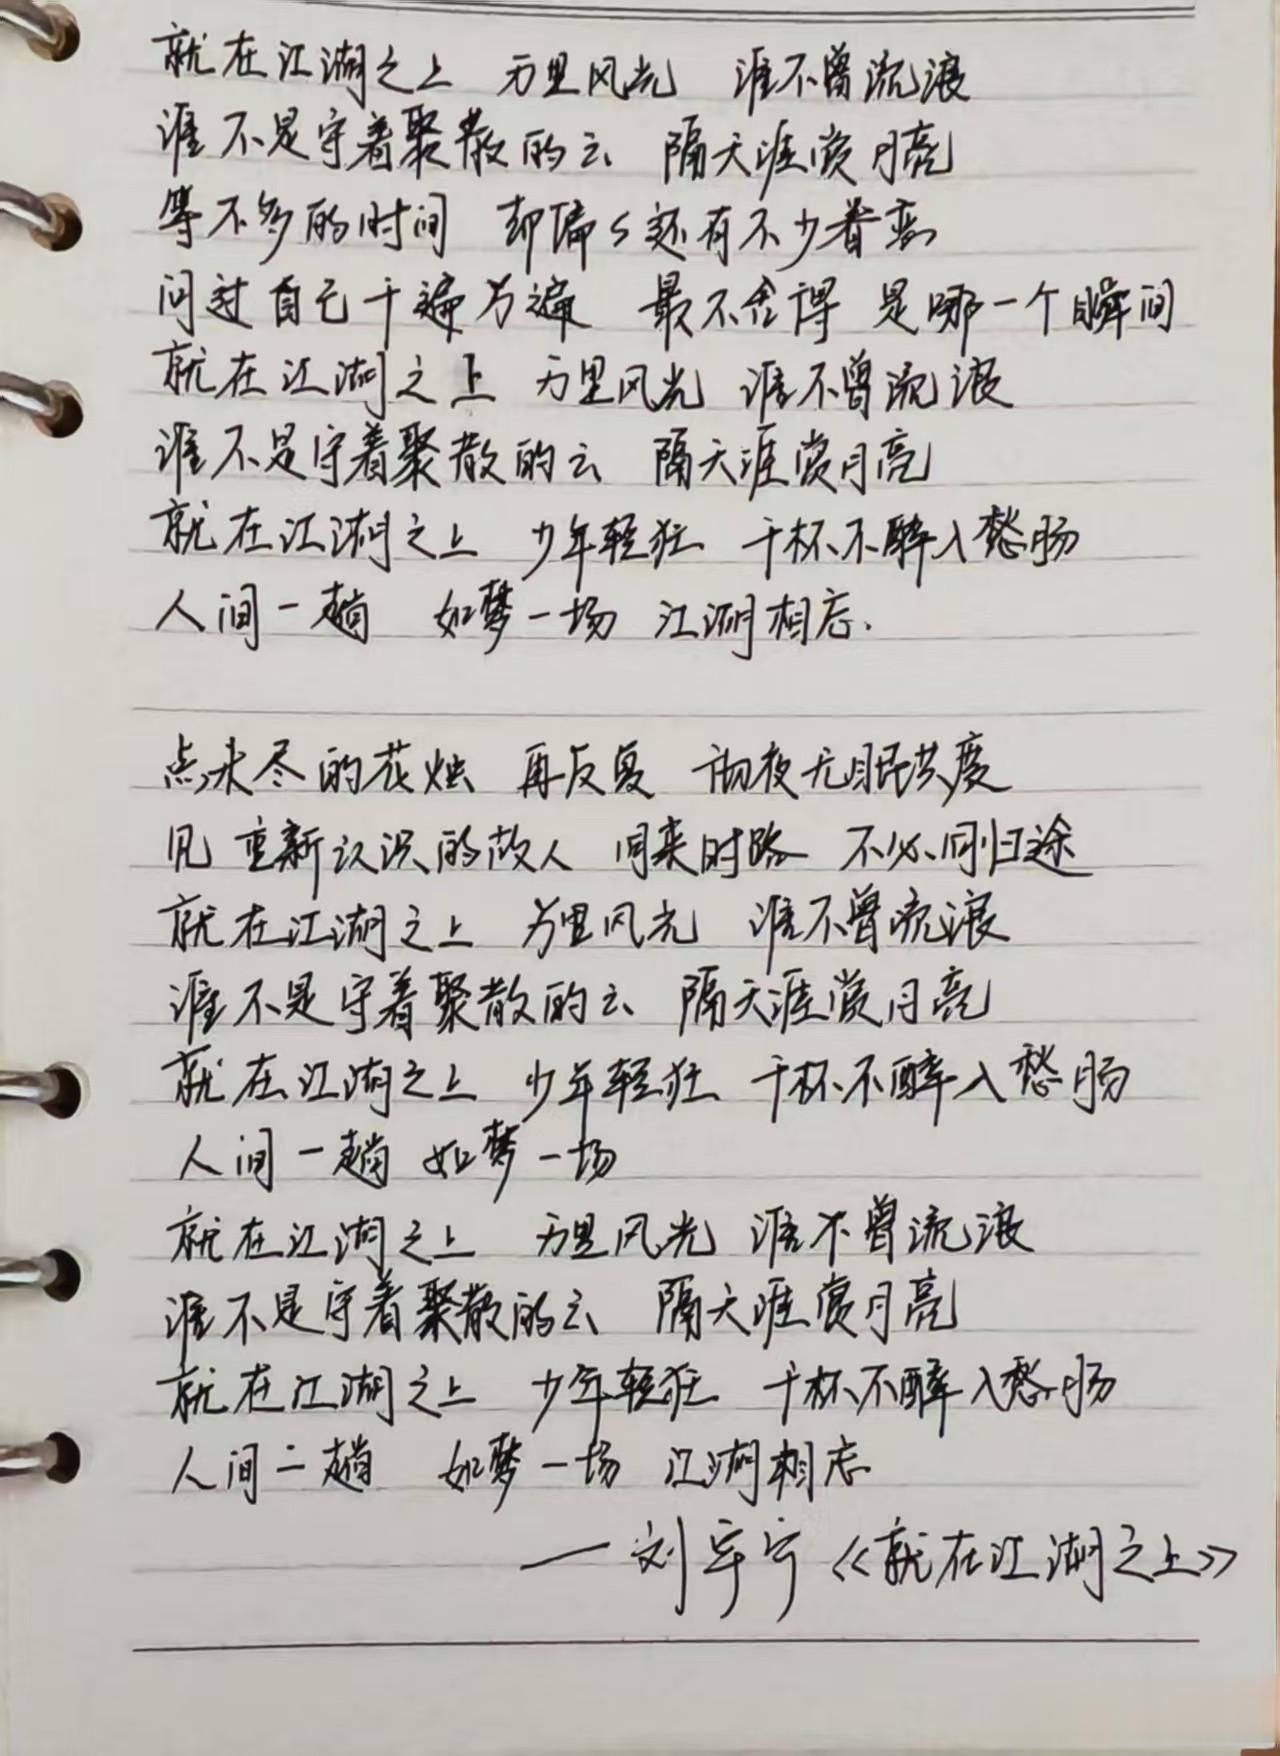 就在江湖之上 万里风光 谁不曾流浪
谁不是守着聚散的云 隔天涯赏月亮
等不多的时间 却偏々还有不少眷恋
问过自己千遍万遍 最不舍得 是哪一个瞬间
就在江湖之上 万里风光 谁不曾流浪
谁不是守着聚散的云 隔天涯赏月亮
就在江湖之上 少年轻狂 千杯不醉入愁肠
人间一趟 如梦一场 江湖相忘.
点未尽的花烛 再反复 彻夜无眠共度
见 重新认识的故人 同来时路 不必同归途
就在江湖之上 万里风光 谁不曾流浪
谁不是守着聚散的云 隔天涯赏月亮
就在江湖之上 少年轻狂 千杯不醉入愁肠
人间一趟 如梦一场
就在江湖之上 万里风光 谁不曾流浪
谁不是守着聚散的云 隔天涯赏月亮
就在江湖之上 少年轻狂 千杯不醉入愁肠
人间一趟 如梦一场 江湖相忘
——刘宇宁《就在江湖之上》